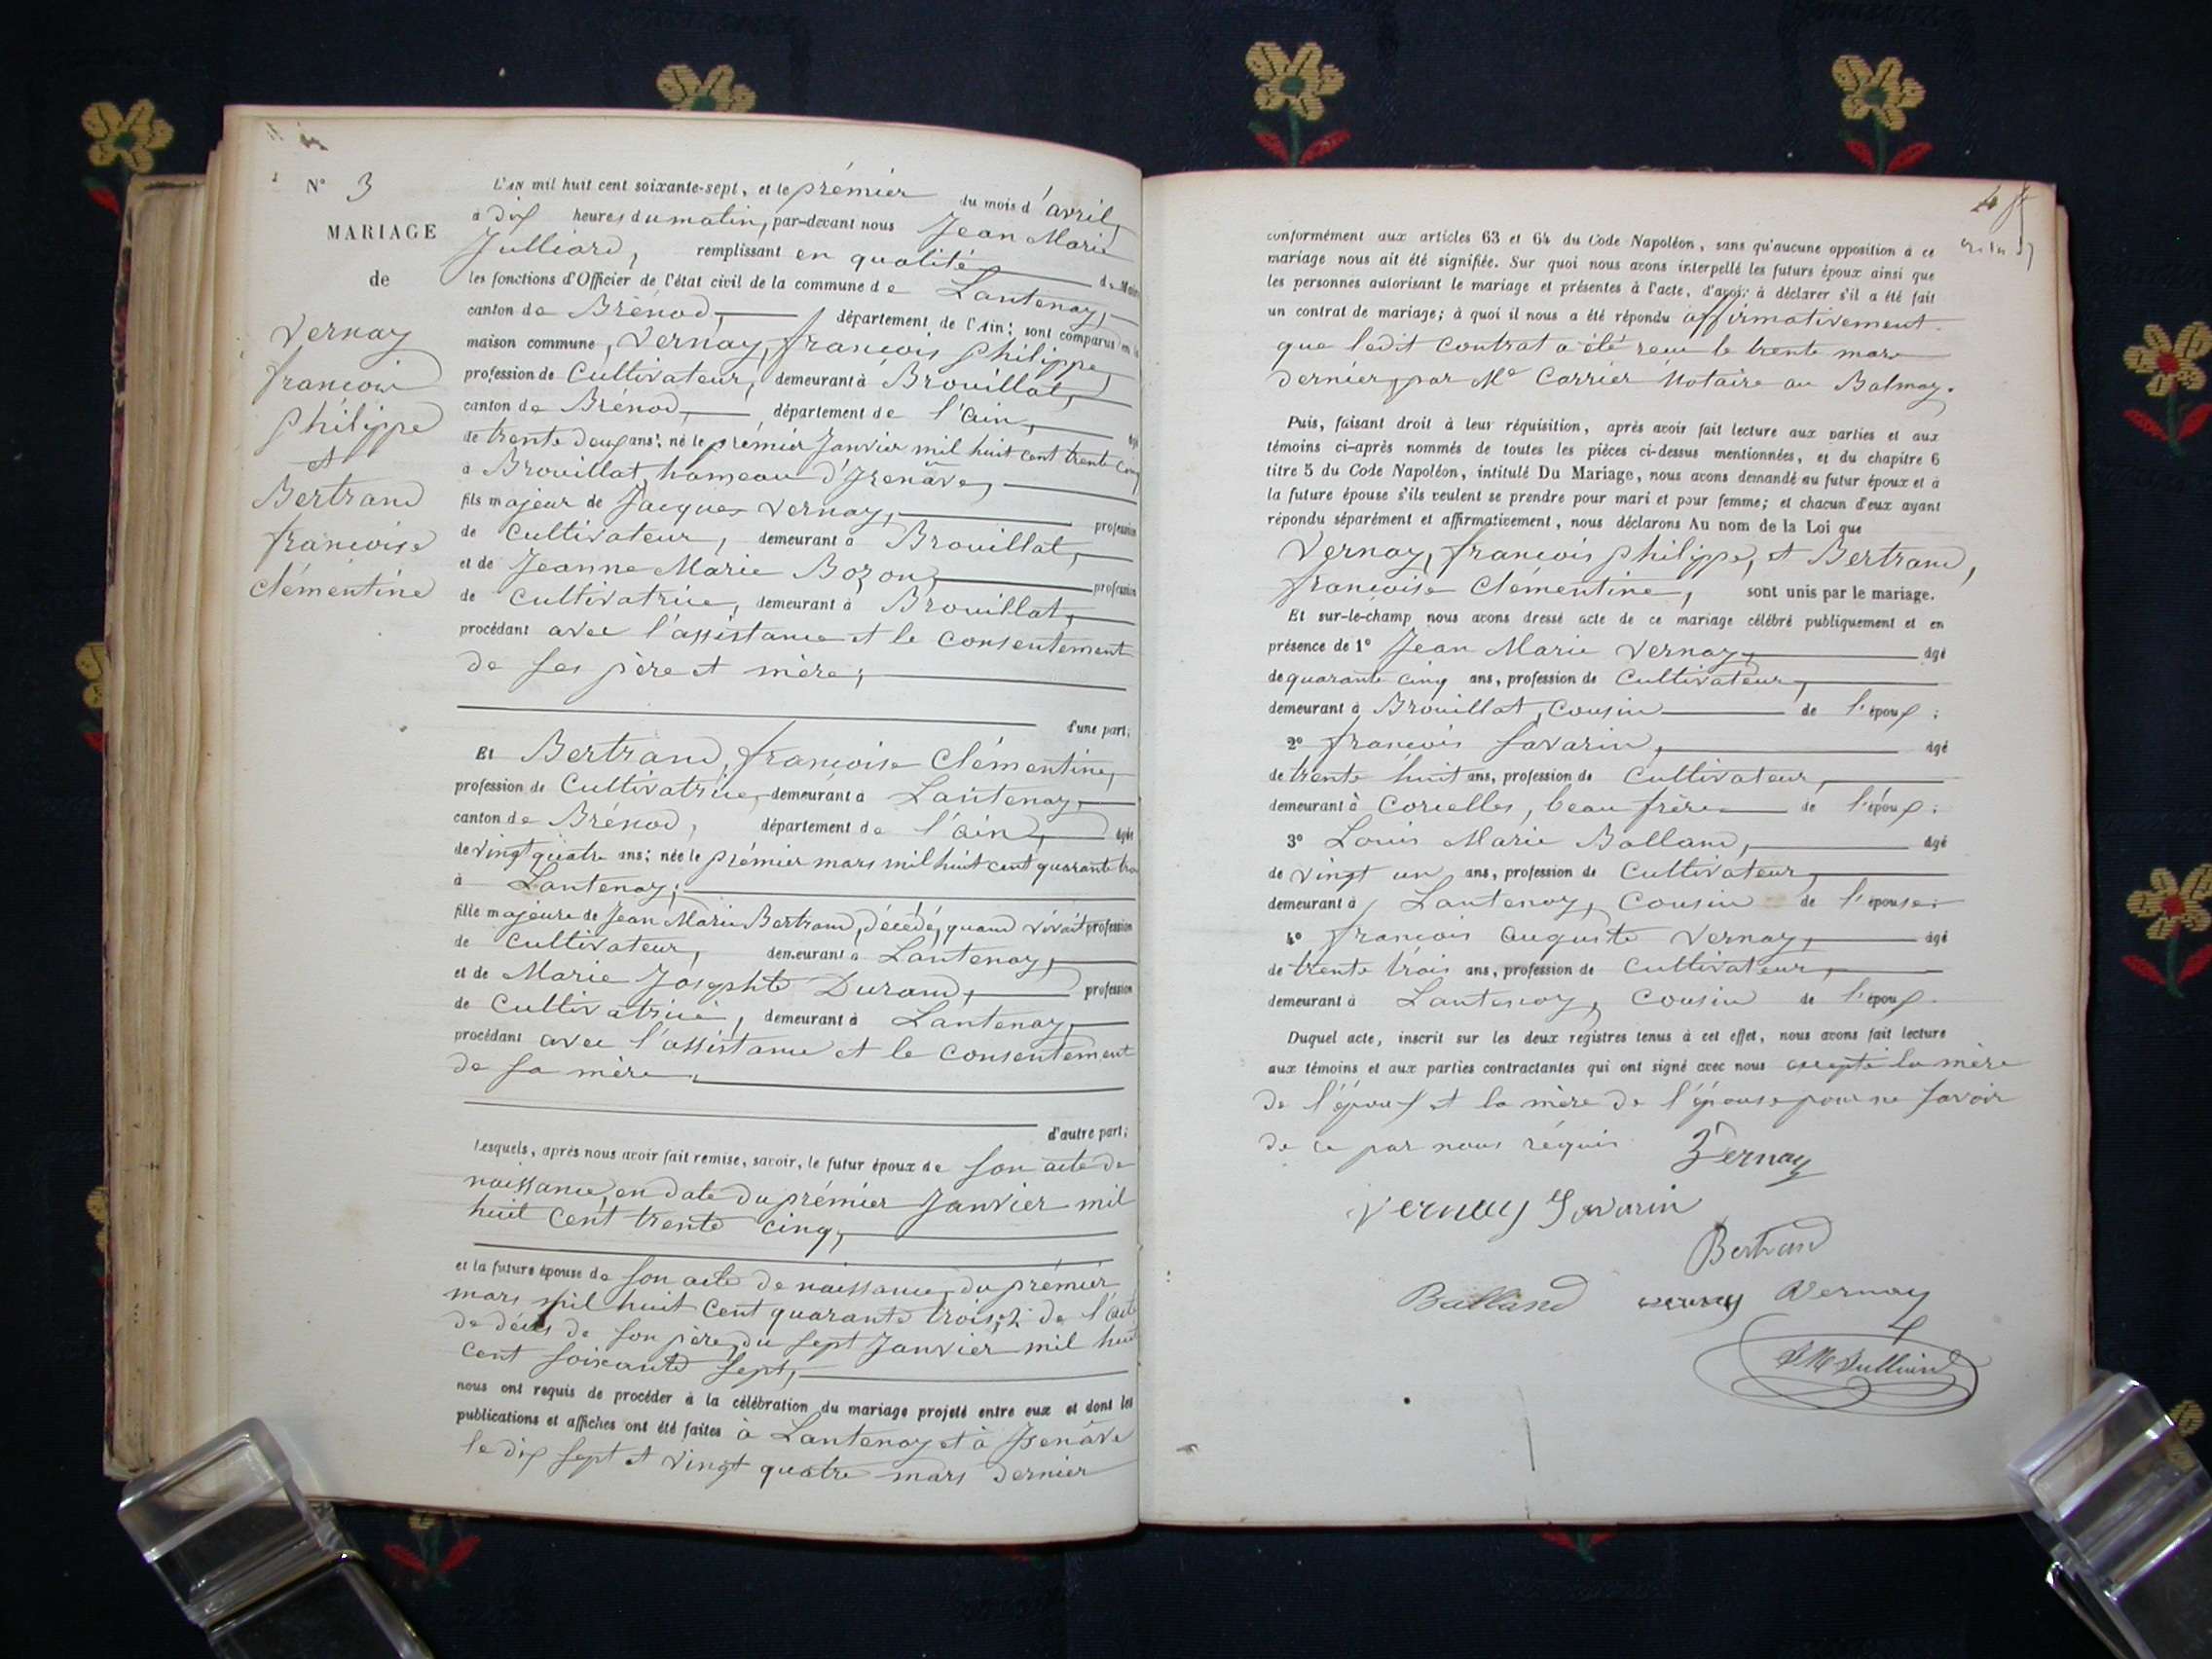 N° 3
MARIAGE
de
Vernay
françois
philippe
et
Bertrand
françoise
Clémentine
L'AN mil huit cent soixante-sept, et le prémier du mois d'avril,
à dix heures du matin, par-devant nous Jean Marie
Julliard, remplissant en qualité de Maire
les fonctions d'Officier de l'état civil de la commune de Lantenay,
canton de Brénod, département de l'Ain; sont comparus en la
maison commune, Vernay, françois philippe,
profession de Cultivateur, demeurant à Brouillat,
canton de Brénod, département de l'ain, âgé
de trente deux ans; né le prémier Janvier mil huit cent trente cinq
à Brouillat, hameau d'Izenâve,
fils majeur de Jacques Vernay, profession
de Cultivateur, demeurant à Brouillat,
et de Jeanne Marie Bozon, profession
de Cultivatrice, demeurant à Brouillat,
procédant avec l'assistance et le Consentement
de ses père et mère;
d'une part;
Et Bertrand, françoise Clémentine,
profession de Cultivatrice, demeurant à Lantenay,
canton de Brénod, département de l'ain, âgée
de vingt quatre ans; née le prémier mars mil huit cent quarante trois
à Lantenay;
fille majeure de Jean Marie Bertrand, décédé, quand vivait profession
de Cultivateur, demeurant à Lantenay,
et de Marie Josephte Durand, profession
de Cultivatrice, demeurant à Lantenay,
procédant avec l'assistance et le Consentement
de sa mère,
d'autre part;
Lesquels, après nous avoir fait remise, savoir, le futur époux de son acte de
naissance, en date du prémier Janvier mil
huit Cent trente cinq,
et la future épouse de son acte de naissance, du prémier
mars mil huit Cent quarante trois, 2° de l'acte
de décès de son père, du sept Janvier mil huit
Cent soixante sept,
nous ont requis de procéder à la célébration du mariage projeté entre eux et dont les
publications et affiches ont été faites à Lantenay et à Izenâve
le dix sept et vingt quatre mars dernier
conformément aux articles 63 et 64 du Code Napoléon, sans qu'aucune opposition à ce
mariage nous ait été signifiée. Sur quoi nous avons interpellé les futurs époux ainsi que
les personnes autorisant le mariage et présentes à l'acte, d'avoir à déclarer s'il a été fait
un contrat de mariage; à quoi il nous a été répondu affirmativement
que ledit Contrat a été reçu le trente mars
dernier, par Me Carrier Notaire au Balmay.
Puis, faisant droit à leur réquisition, après avoir fait lecture aux parties et aux
témoins ci-après nommés de toutes les pièces ci-dessus mentionnées, et du chapitre 6
titre 5 du Code Napoléon, intitulé Du Mariage, nous avons demandé au futur époux et à
la future épouse s'ils veulent se prendre pour mari et pour femme; et chacun d'eux ayant
répondu séparément et affirmativement, nous déclarons Au nom de la Loi que
Vernay, françois philippe, et Bertrand,
françoise Clémentine, sont unis par le mariage.
Et sur-le-champ nous avons dressé acte de ce mariage célébré publiquement et en
présence de 1° Jean Marie Vernay, âgé
de quarante cinq ans, profession de Cultivateur,
demeurant à Brouillat, Cousin de l'époux;
2° françois Savarin, âgé
de trente huit ans, profession de Cultivateur,
demeurant à Corcelles, beau frère de l'époux;
3° Louis Marie Balland, âgé
de vingt un ans, profession de Cultivateur,
demeurant à Lantenay, Cousin de l'épouse;
4° françois auguste Vernay, âgé
de trente trois ans, profession de Cultivateur,
demeurant à Lantenay, Cousin de l'époux.
Duquel acte, inscrit sur les deux registres tenus à cet effet, nous avons fait lecture
aux témoins et aux parties contractantes qui ont signé avec nous excepté la mère
de l'époux et la mère de l'épouse pour ne savoir
de ce par nous réquis
Vernay
Vernay Savarin
Bertrand
Balland Vernay Vernay
JM Julliard